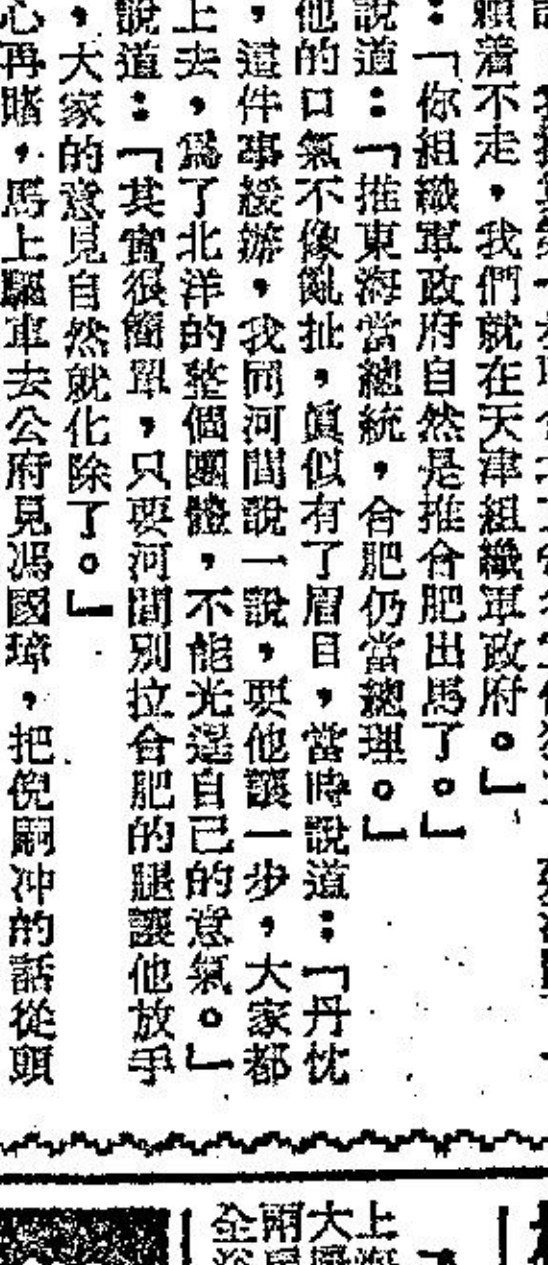 賴着不走，我們就在天津組織軍政府。」
：「你組織軍政府自然是推合肥出馬了。」
說道：「推東海當總統，合肥仍當總理。」
他的口氣不像亂扯，眞似有了眉目，當時說道：「丹忱
，這件事緩辦，我同河間說一說，要他讓一步，大家都
上去，爲了北洋的整個團體，不能光逞自己的意氣。」
說道：「其實很簡單，只要河間別拉合肥的腿讓他放手
，大家的意見自然就化除了。」
心再賭，馬上驅車去公府見馮國璋，把倪嗣冲的話從頭
上海
大
兩
全